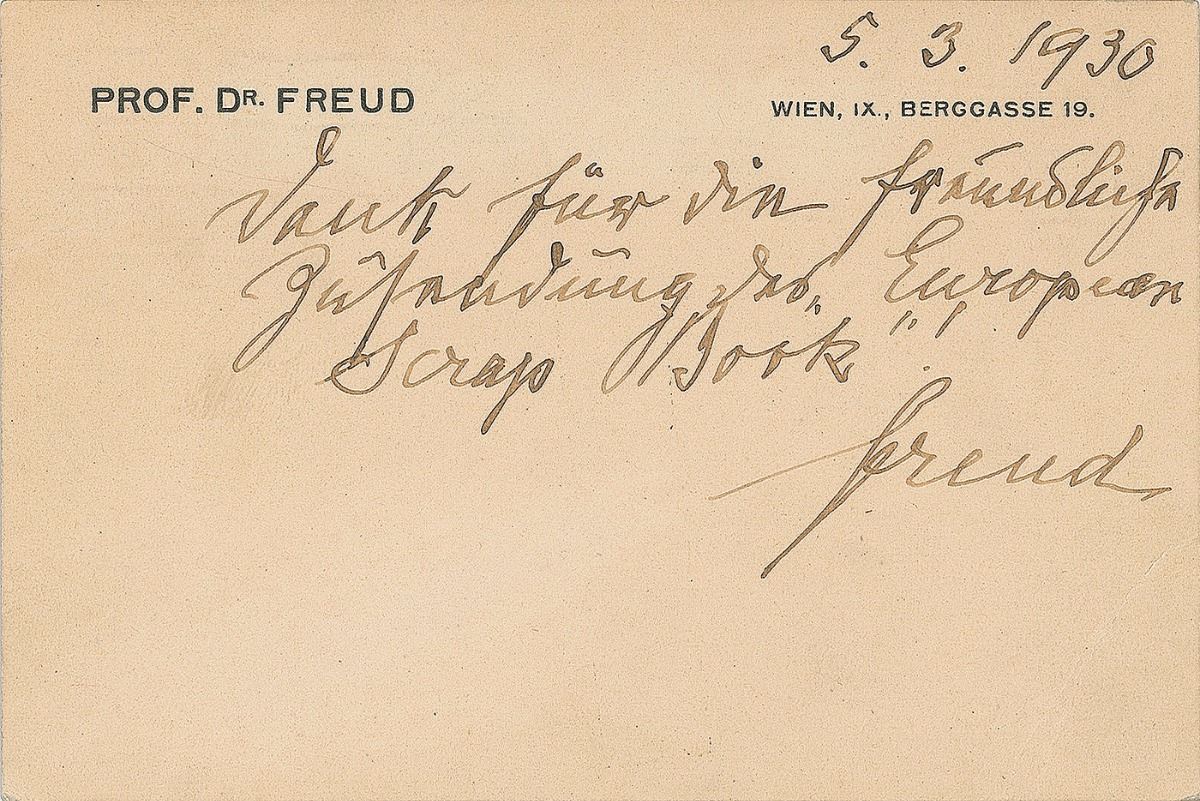 5. 3. 1930
PROF. DR. FREUD
WIEN, IX., BERGGASSE 19.
Dank für die freundliche
Zusendung des „European
Scrap Book“!
Freud